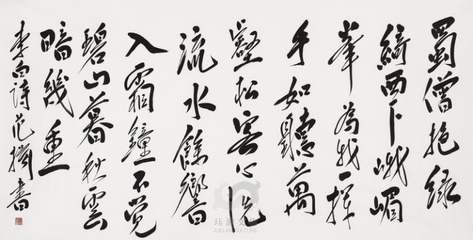 蜀僧抱綠
綺西下峨嵋
峯為我一揮
手如聽萬
壑松客心洗
流水餘響
入霜鐘不觉
碧山暮秋雲
暗幾重
李白詩范書